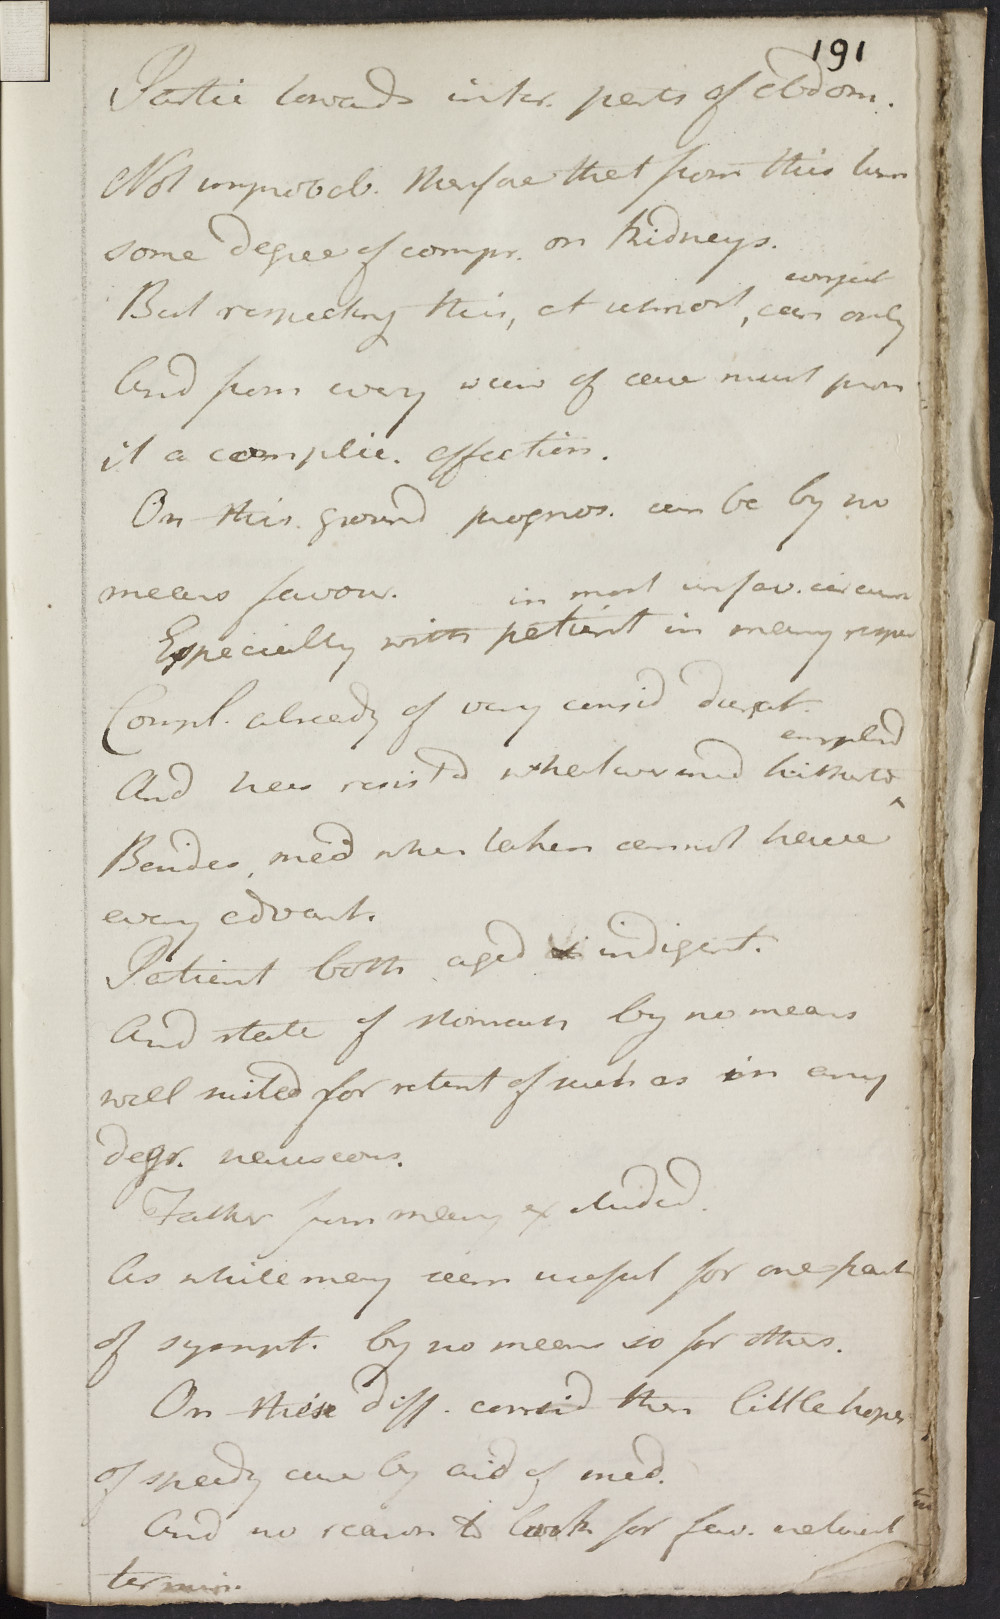 191
Partic towards inter. parts of abdom.
Not improbab. therfore that from this turn
some degree of compr. on Kidneys.
conject
But respecting this, at utmost, can only
And from every view of case must pron
it a complic. affection.
On this ground prognos. can be by no
means favour.
in most unfav. circum
Especially with patient in many respec
Compl. already of very consid durat.
employd
And has resistd whatever med hitherto ^
Besides, med when taken cannot have
every advant.
Patient both aged & indigent.
And state of stomach by no means
well suited for retent of such as in any
degr. nauseous.
Father from many excluded.
As while may seem useful for one part
of sympt. by no means so for others.
On these diff. consid then little hopes
of speedy cure by aid of med.
And no reason to look for fav. natural
termin.